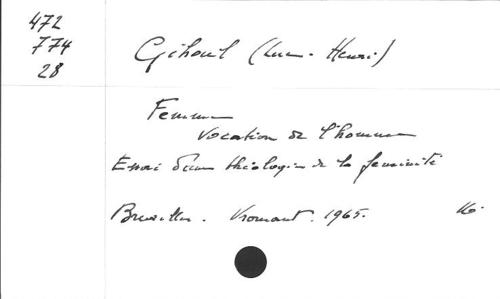 472
774
28
Gihoul (Luc-Henri)
Femme
Vocation de l'homme
Essai d'une théologie de la féminité
Bruxelles. Vromant. 1965. 16°